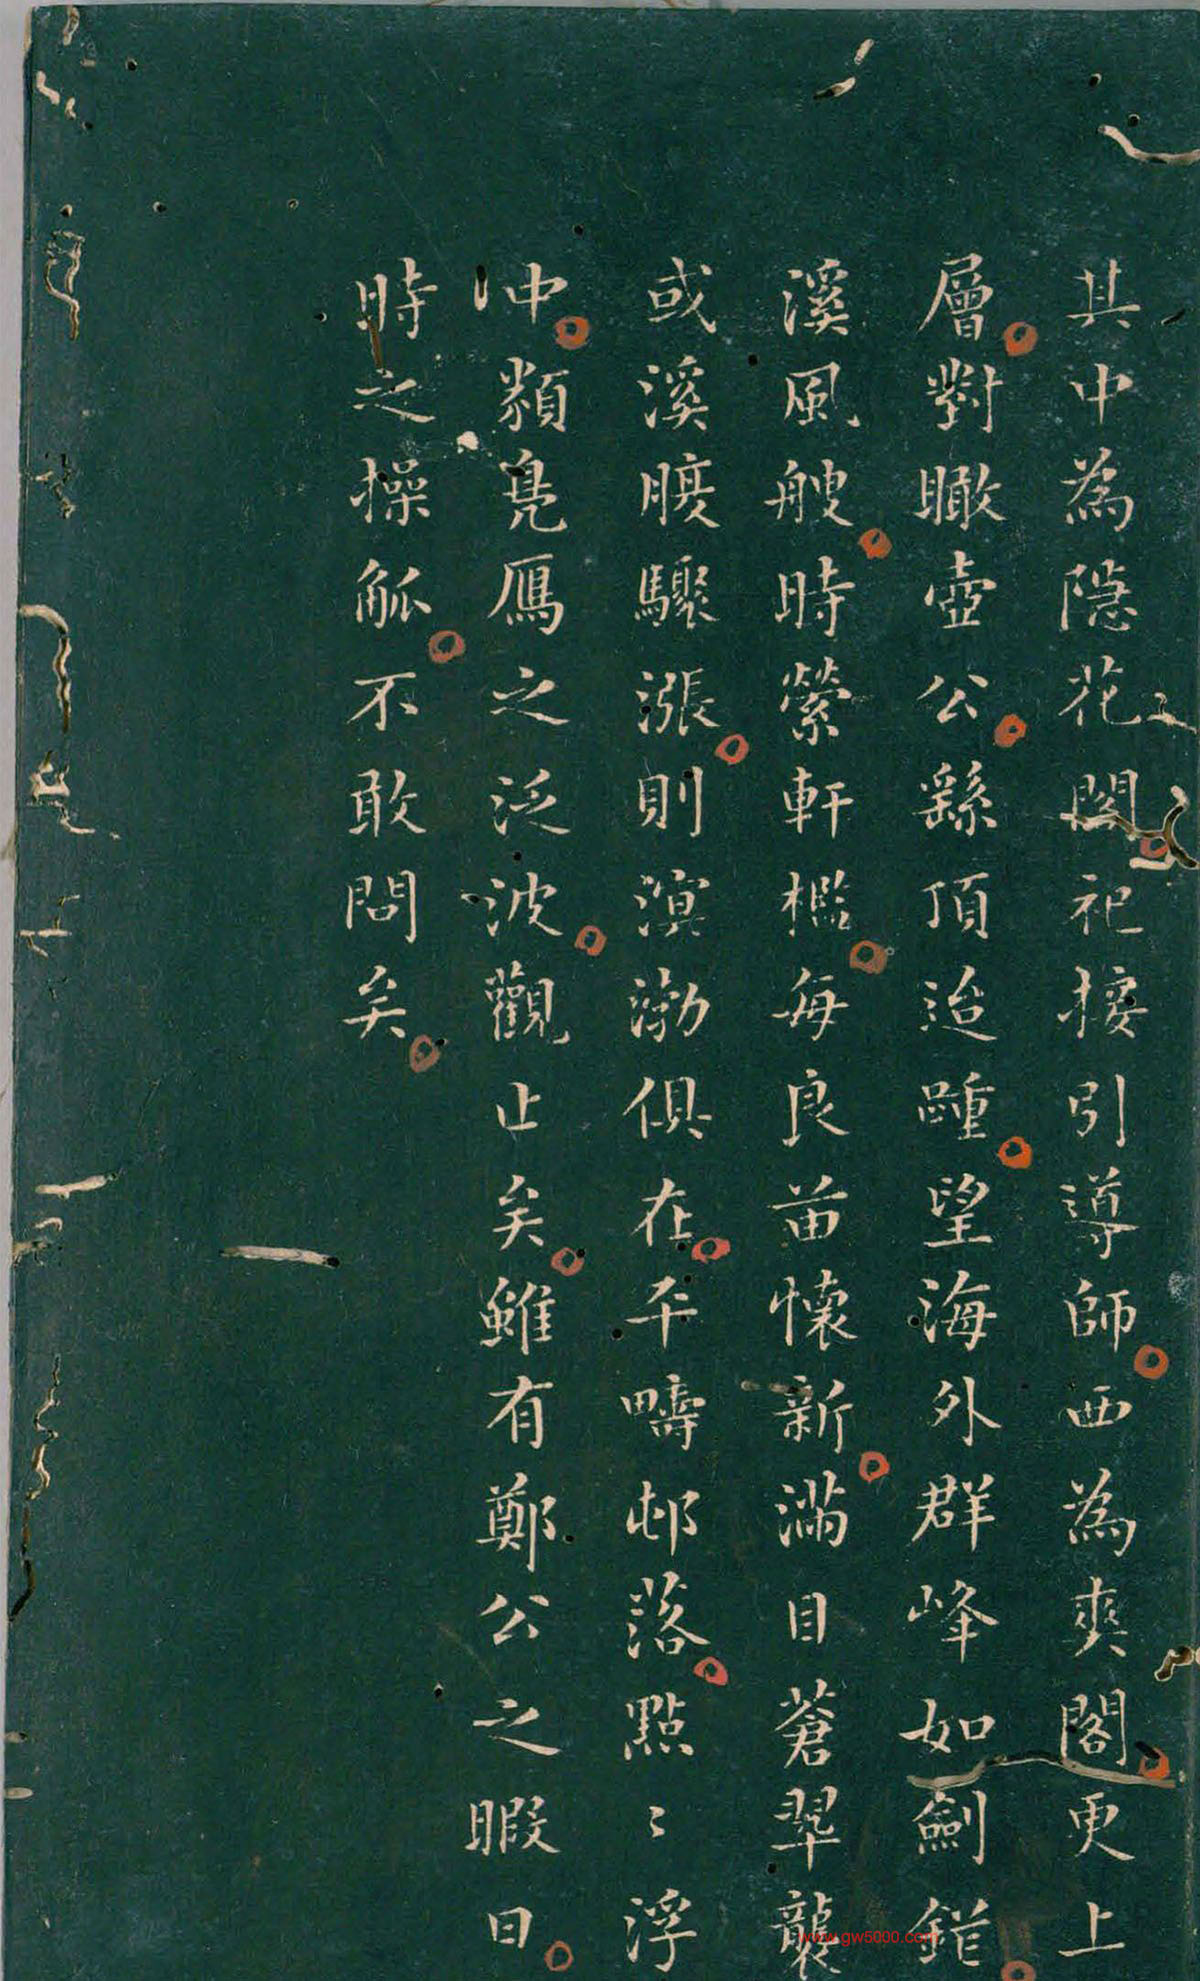 其中為隱花閣祀接引導師西為爽閣更上
層對瞰壺公繇頂迨踵望海外群峰如劍鋩
溪風艘時縈軒檻每良苗懷新滿目蒼翠襲
或溪腠驟漲則溟渤俱在平疇邨落點〻浮
沖類鳧雁之泛波觀止矣雖有鄭公之暇日
時之操觚不敢問矣
www.gw5000.com